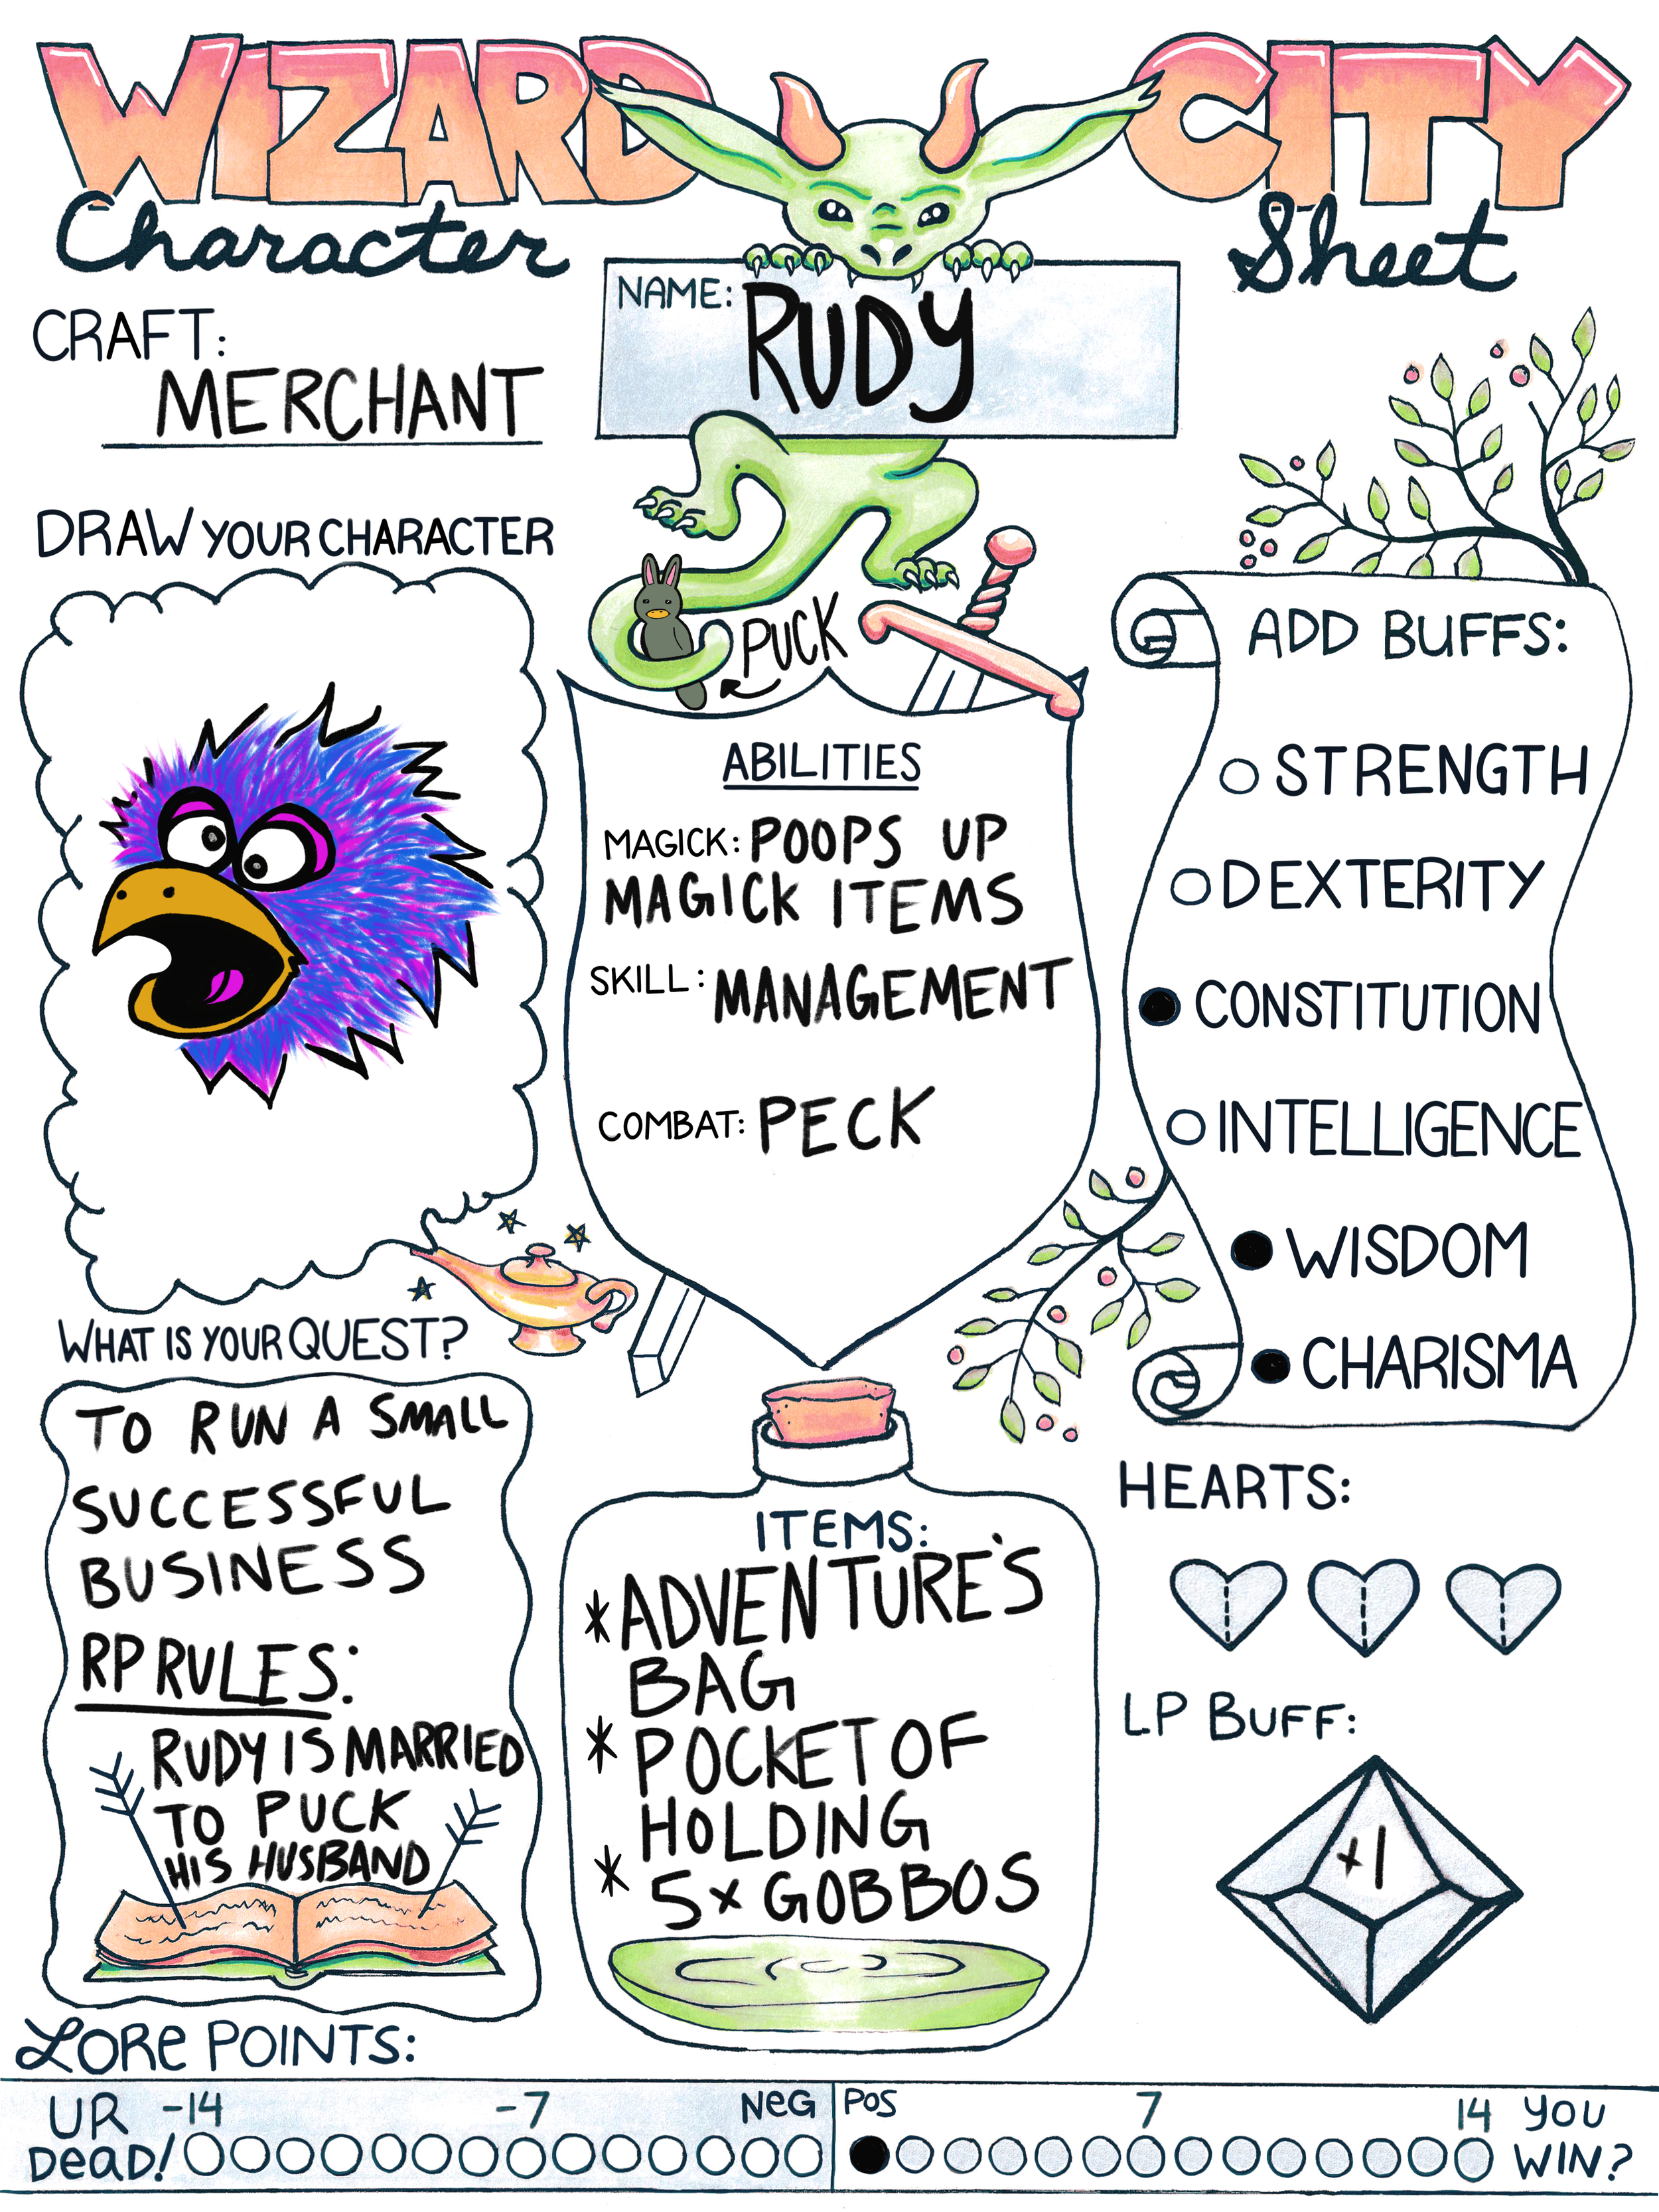 WIZARD CITY
Character Sheet
NAME: RUDY
CRAFT:
MERCHANT
DRAW YOUR CHARACTER
PUCK
ABILITIES
MAGICK: POOPS UP
MAGICK ITEMS
SKILL: MANAGEMENT
COMBAT: PECK
ADD BUFFS:
STRENGTH
DEXTERITY
CONSTITUTION
INTELLIGENCE
WISDOM
CHARISMA
WHAT IS YOUR QUEST?
TO RUN A SMALL
SUCCESSFUL
BUSINESS
RP RULES:
RUDY IS MARRIED
TO PUCK
HIS HUSBAND
ITEMS:
* ADVENTURE'S
BAG
* POCKET OF
HOLDING
* 5x GOBBOS
HEARTS:
LP BUFF:
+1
LORE POINTS:
UR -14 -7 NEG POS 7 14 YOU
DEAD! WIN?